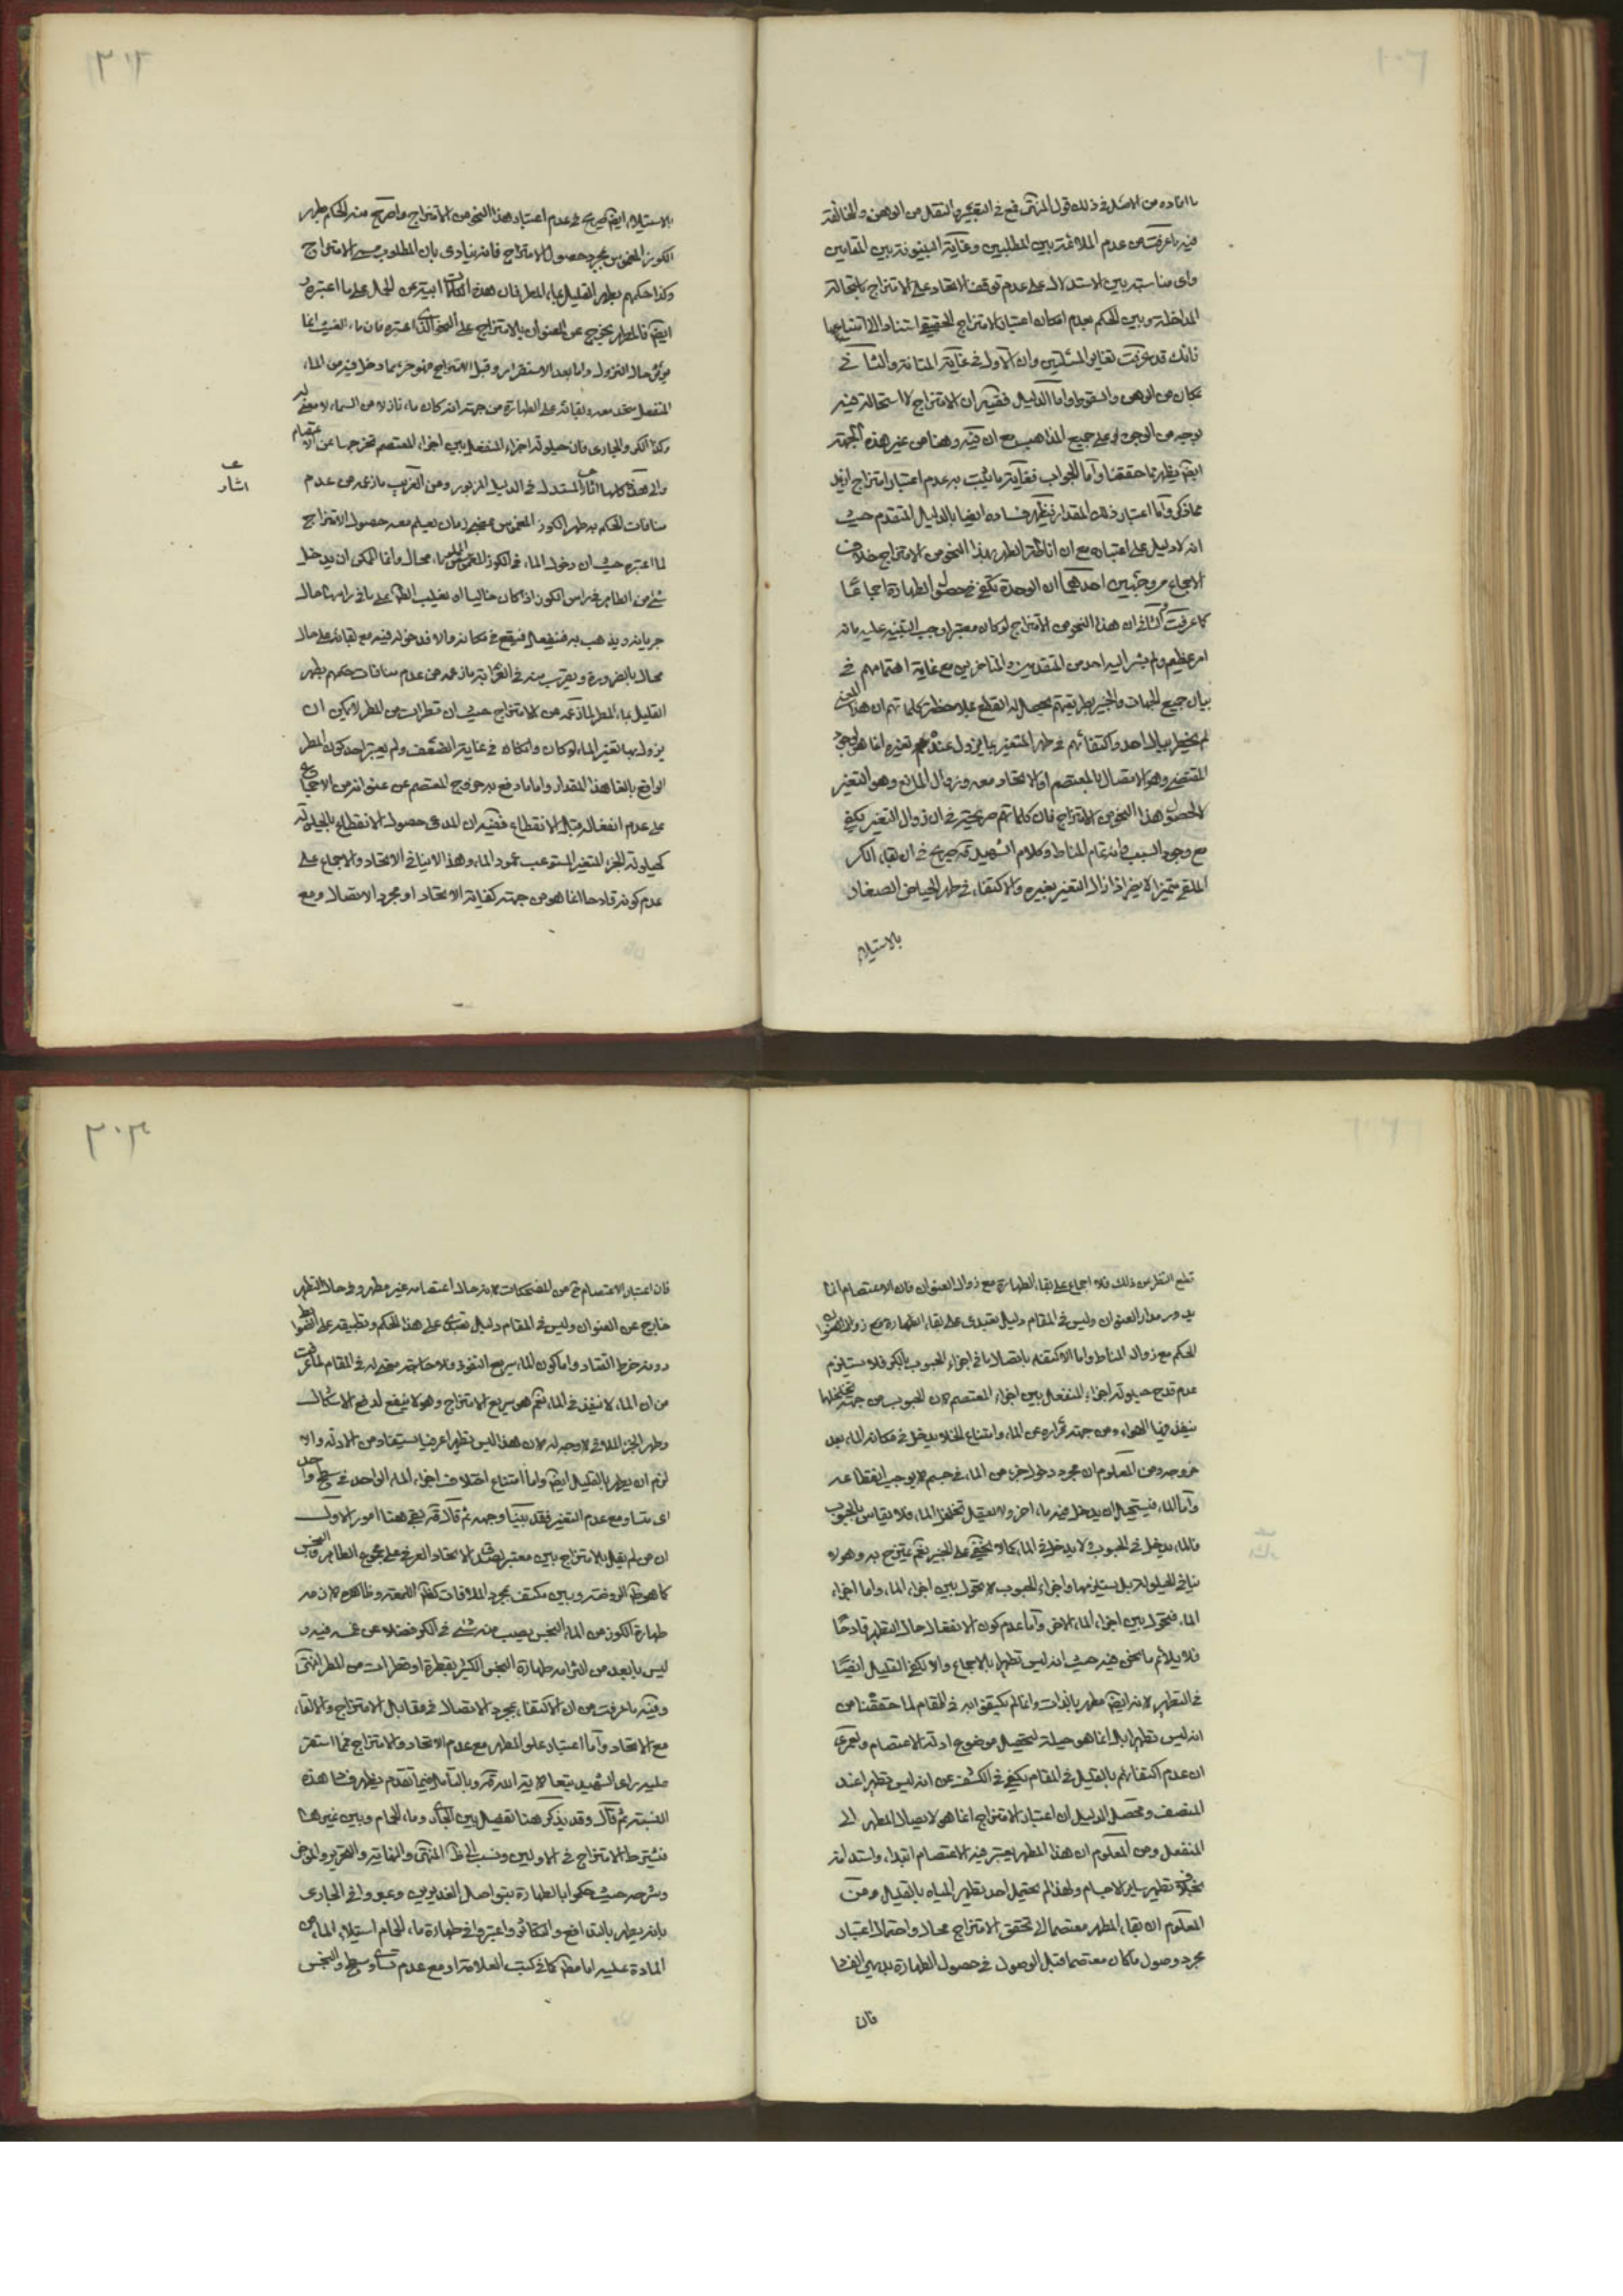 ما افاده من الاصل في ذلك قول المنتهى فمع في التعبير والنقل من الوهن والمخالفة
فيه ما عرفت من عدم الملائمة بين المطلبين وغاية البينونة بين المقامين
واى مناسبة بين الاستدلال على عدم توقف الاتحاد على الامتزاج باستحالة
المداخلة وبين الحكم بعدم امكان اعتبار الامتزاج الحقيقي استنادا الى امتناعها
فانك قد عرفت تغاير المسئلتين وان الاول في غاية المتانة والثاني في
مكان من الوهن والسقوط واما الدليل ففيه ان الامتزاج لا استحالة فيه
بوجه من الوجوه على جميع المذاهب مع ان فيه وهنا من غير هذه الجهة
ايضا يظهر مما حققنا واما الجواب فغاية ما يثبت به عدم اعتبار امتزاج ازيد
مما ذكر واما اعتبار ذلك المقدار فيظهر فساده ايضا بالدليل المتقدم حيث
انه لا دليل على اعتباره مع ان اناطة الطهر بهذا النحو من الامتزاج خلاف
الاجماع من وجهين احدهما ان الوحدة تكفي في حصول الطهارة اجماعا
كما عرفت والثاني ان هذا النحو من الامتزاج لو كان معتبرا وجب التنبيه عليه فانه
امر عظيم ولم يشر اليه احد من المتقدمين والمتاخرين مع غاية اهتمامهم في
بيان جميع الجهات والخبير بطريقتهم يحصل له القطع بملاحظة كلماتهم ان هذا المعنى
لم يخطر ببال احد واكتفائهم في طهر المتغير بما يزول عنده تغيره انما هو لوجود
المقتضي وهو الاتصال بالمعتصم او الاتحاد معه وزوال المانع وهو التغير
لا لحصول هذا النحو من الامتزاج فان كلماتهم صريحة في ان زوال التغير يكفي
مع وجود السبب فانه تمام المناط وكلام الشهيد صريح في ان بقاء الكر
الملقى متميزا لا يضر اذا زال التغير بغيره والاكتفاء في طهر الحياض الصغار
بالاستيلاء
٣٠٢
بالاستيلاء ايضا صريح في عدم اعتبار هذا النحو من الامتزاج واصرح منه الحكم بطهر
الكوز المغموس بمجرد حصول الامتزاج فانه ينادى بان المطلوب مسمى الامتزاج
وكذا حكمهم بطهر القليل بماء المطر فان هذه الكلمات ابية عن الحمل على ما اعتبره
ايضا فالمطر يخرج عن العنوان بالامتزاج على النحو الذي اعتبره فان ماء الغيث انما
يؤثر حال النزول واما بعد الاستقرار وقبل الامتزاج فهو جزء مما دخل فيه من الماء
المنفعل متحد معه وبقائه على الطهارة من جهة انه كان ماء نازلا من السماء لا معنى له
وكذا الكر والجارى فان حيلولة اجزاء المنفعل بين اجزاء المعتصم تخرجها عن الاعتصام
والى هذا كلها اشار المستدل في الدليل المزبور ومن الغريب ما زعمه من عدم
منافات الحكم بطهر الكوز المغموس بمضى زمان يعلم معه حصول الامتزاج
لما اعتبره حيث ان دخول الماء في الكوز المغموس المملو ماء محال وانما الممكن ان يدخل
شئ من الطاهر في راس الكوز اذا كان خاليا او يغلب الطاهر على ما في راسه حال
جريانه ويذهب به فينفصل فيقع في مكانه والا فدخوله فيه مع بقائه على حاله
محال بالضرورة ويقرب منه في الغرابة ما زعمه من عدم منافات حكمهم بطهر
القليل بماء المطر لما زعمه من الامتزاج حيث ان قطرات من المطر لا يمكن ان
يزول بها تغير الماء لو كان وان كان في غاية الضعف ولم يعتبر احد كون المطر
الواقع بالغا هذا المقدار واما ما دفع به خروج المعتصم عن عنوانه من الاجماع
على عدم انفعاله قبل الانقطاع ففيه ان المدعى حصول الانقطاع بالحيلولة
كحيلولة الجزء المتغير المستوعب عمود الماء وهذا لا ينافي الاتحاد والاجماع على
عدم كونه قادحا انما هو من جهة كفاية الاتحاد او مجرد الاتصال ومع
اشار
قطع النظر عن ذلك فلا اجماع على بقاء الطهارة مع زوال العنوان فان الاعتصام انما
يدور مدار العنوان وليس في المقام دليل تعبدى على بقاء الطهارة مع زوال العنوان
الحكم مع زوال المناط واما الاكتفاء باتصال ما في اجزاء الحبوب بالكر فلا يستلزم
عدم قدح حيلولة اجزاء المنفعل بين اجزاء المعتصم لان الحبوب من جهة تخلخلها
ينفذ فيها الهواء ومن جهة فراره عن الماء وامتناع الخلاء يدخل في مكانه الماء بعد
خروجه ومن المعلوم ان مجرد دخول جزء من الماء في جسم لا يوجب انقطاعه
واما الماء فيستحيل ان يدخل فيه ماء اخر ولا يعقل تخلخل الماء فلا يقاس بالحبوب
فالماء يدخل في الحبوب ولا يدخل في الماء كما لا يخفى على الخبير نعم يمتزج به وهو لا
ينافي الحيلولة بل يستلزمها واجزاء الحبوب لا تحول بين اجزاء الماء واما اجزاء
الماء فتحول بين اجزاء الماء الاخر واما عدم كون الانفعال حال التطهر قادحا
فلا يلائم ما نحن فيه حيث انه ليس تطهيرا بالاجماع والا لكفى القليل ايضا
في التطهير لانه ايضا مطهر بالذات وانما لم يكتفوا به في المقام لما حققنا من
انه ليس تطهيرا بل انما هو حيلة لتحصيل موضوع ادلة الاعتصام ولعمرى
ان عدم اكتفائهم بالقليل في المقام يكفي في الكشف عن انه ليس تطهيرا عند
المنصف ومحصل الدليل ان اعتبار الامتزاج انما هو لايصال المطهر الى
المنفعل ومن المعلوم ان هذا المطهر يعتبر فيه الاعتصام ابتداء واستدامة
بخلاف تطهير ساير الاجسام ولهذا لم يحتمل احد تطهير المياه بالقليل ومن
المعلوم ان بقاء المطهر معتصما الى تحقق الامتزاج محال واحتمال اعتبار
مجرد وصول ما كان معتصما قبل الوصول في حصول الطهارة بديهي الفساد
فان
٣٠٣
فان اعتبار الاعتصام من المضحكات لانه حال اعتصامه غير مطهر وفي حال التطهير
خارج عن العنوان وليس في المقام دليل تعبدى على هذا الحكم وتطبيقه على الضوابط
دونه خرط القتاد واما كون الماء سريع النفوذ فلا محصل له في المقام لما عرفت
من ان الماء لا ينفذ في الماء نعم هو سريع الامتزاج وهو لا ينفع لدفع الاشكال
وطهر الجزء الملاقي لا وجه له لان هذا ليس تطهيرا عرفيا يستفاد من الادلة والا
لزم ان يطهر بالقليل ايضا واما امتناع اختلاف اجزاء الماء الواحد في سطح واحد
اى متساو مع عدم التغير فقد بينا وجهه ثم قال بقي هنا امور الاول
ان من لم يقل بالامتزاج بين معتبر لصدق الاتحاد العرفي على مجموع الطاهر والنجس
كما هو الروضة وبين مكتف بمجرد الملاقات كظ اللمعة وظاهره لازمه
طهارة الكوز من الماء النجس يصيب منه شئ في الكر فضلا عن غمسه فيه و
ليس بابعد من التزامه طهارة النجس الكثير بقطرة او قطرات من المطر انتهى
وفيه ما عرفت من ان الاكتفاء بمجرد الاتصال في مقابل الامتزاج والالقاء
مع الاتحاد واما اعتبار علو المطهر مع عدم الاتحاد والامتزاج فمما استقر
عليه راى الشهيد تبعا لاية الله وبالتامل فيما تقدم يظهر فساد هذه
النسبة ثم قال وقد يذكر هنا تفصيل بين الجارى وماء الحمام وبين غيرهما
فيشترط الامتزاج في الاولين ونسب الى المنتهى والنهاية والتحرير والموجز
وشرحه حيث حكموا بالطهارة بتواصل الغديرين وعبروا في الجارى
بانه يطهر بالتدافع والتكاثر واعتبروا في طهارة ماء الحمام استيلاء الماء من
المادة عليه اما مطلقا كما في كتب العلامة او مع عدم تساوى سطح النجس